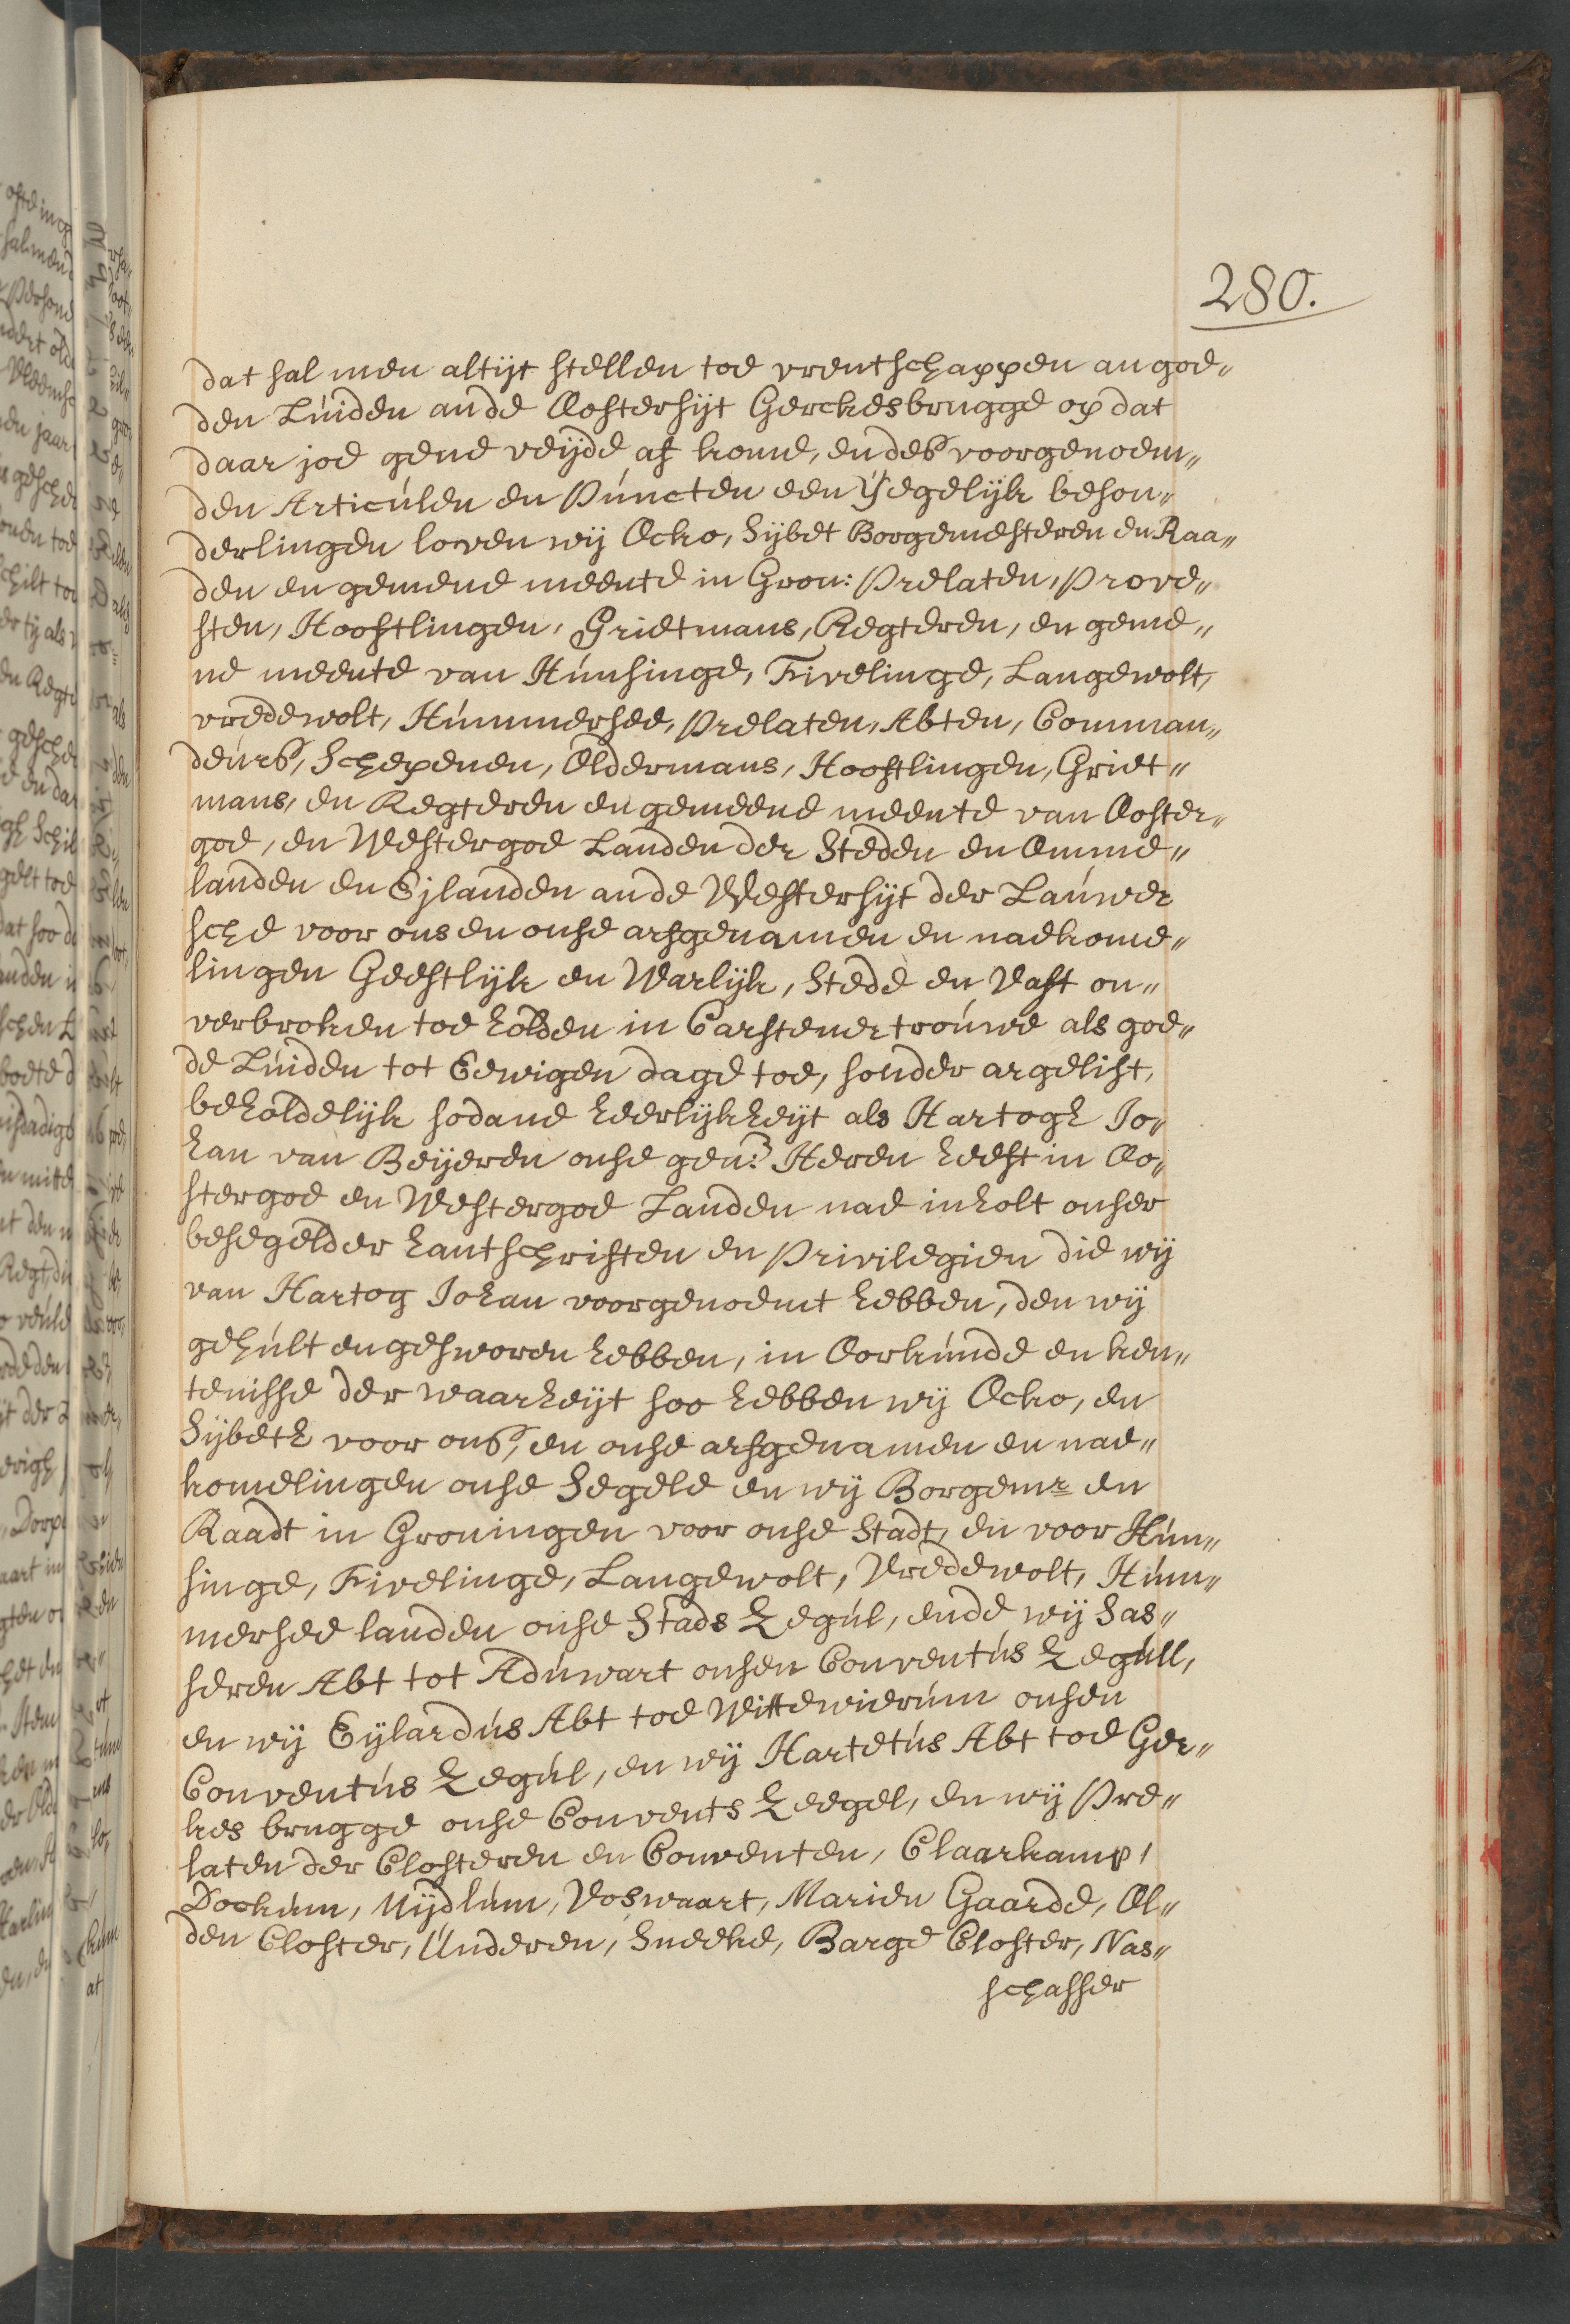 280.
dat sal men altijt stellen toe vrentschappen an goe„
den Lúiden ande Oostersijt Gerckesbrugge op dat
daar joe gene veijde af kome, en des voorgenoem„
den Articúlen en Púncten een ijegelijk beson„
derlingen loven wij Ocko, Sijbet Borgemesteren en Raa„
den en gemene meente in Gron: Prelaten, Prove„
sten, Hooftlingen, Grietmans, Regteren, en geme„
ne meente van Húnsinge, Fivelinge, Langewolt,
vredewolt, Húmmersee, Prelaten, Abten, Comman„
deúrs, Schepenen, Oldermans, Hooftlingen, Griet„
mans, en Regteren en gemeene meente van Ooster„
goe, en Westergoe Landen der Steden en Omme„
landen en Eijlanden ande Westersijt der Laúwer
sche voor ons en onse arfgenamen en naekome„
lingen Geestlijk en Warlijk, Stede en Vast on„
verbroken toe holden in Carstener troúwe als goe„
de Lúiden tot Eewigen dage toe, sonder argelist,
beholdelijk sodane heerlijkheijt als Hartogh Jo„
han van Beijeren onse gen: Heren heeft in Oo„
stergoe en Westergoe Landen nae inholt onser
besegelder hantschriften en Privilegien die wij
van Hartog Johan voorgenoemt hebben, den wij
gehúlt en gesworen hebben, in Oorkúnde en ken„
tenisse der waarheijt soo hebben wij Ocko, en
Sijbeth voor ons, en onse arfgenamen en nae„
komelingen onse Segele en wij Borgemr en
Raadt in Groningen voor onse Stadt, en voor Hún„
singe, Fivelinge, Langewolt, Vredewolt, Húm„
mersee landen onse Stads Zegúl, ende wij Sas„
seren Abt tot Adúwart onsen Conventús Zegúll,
en wij Eijlardús Abt toe Wittewierúm onsen
Conventús Zegúl, en wij Hartetús Abt toe Ger„
kes brugge onse Convents Zeegel, en wij Pre„
laten der Closteren en Conventen, Claarkamp,
Dockúm, Mijdlúm, Voswaart, Marien Gaarde, Ol„
den Closter, Únderen, Sneeke, Barge Closter, Nas„
schasser